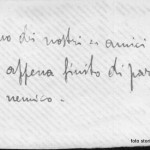 no dei nostri ex amici
appena finito di par
nemico.
foto stor